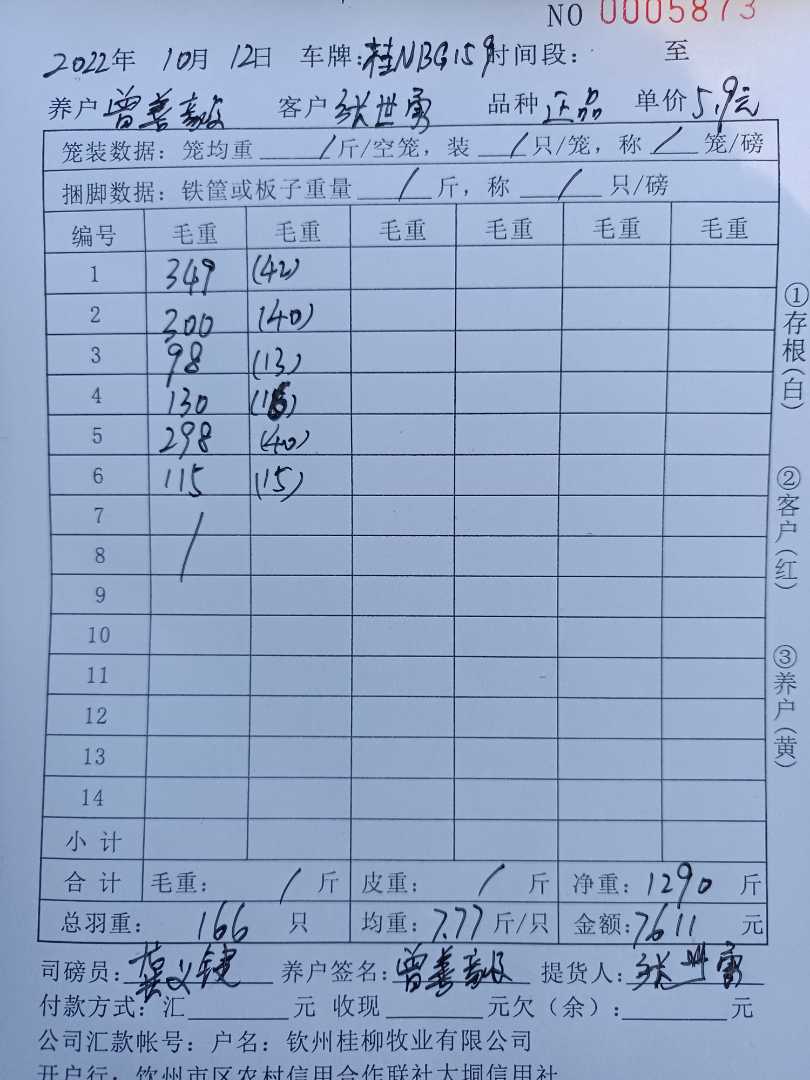 NO 0005873
2022年 10月 12日 车牌:桂NBG159 时间段: 至
养户 曾善毅 客户 张世勇 品种 正品 单价 5.9元
笼装数据: 笼均重 / 斤/空笼, 装 / 只/笼, 称 / 笼/磅
捆脚数据: 铁筐或板子重量 / 斤, 称 / 只/磅
编号 毛重 毛重 毛重 毛重 毛重 毛重
1 349 (42)
2 300 (40)
3 98 (13)
4 130 (16)
5 298 (40)
6 115 (15)
7 /
8
9
10
11
12
13
14
小 计
合 计 毛重: / 斤 皮重: / 斤 净重: 1290 斤
总羽重: 166 只 均重: 7.77 斤/只 金额: 7611 元
司磅员: 莫义键 养户签名: 曾善毅 提货人: 张世勇
付款方式: 汇 元 收现 元欠(余): 元
公司汇款帐号: 户名: 钦州桂柳牧业有限公司
开户行: 钦州市区农村信用合作联社大垌信用社
①存根(白)
②客户(红)
③养户(黄)